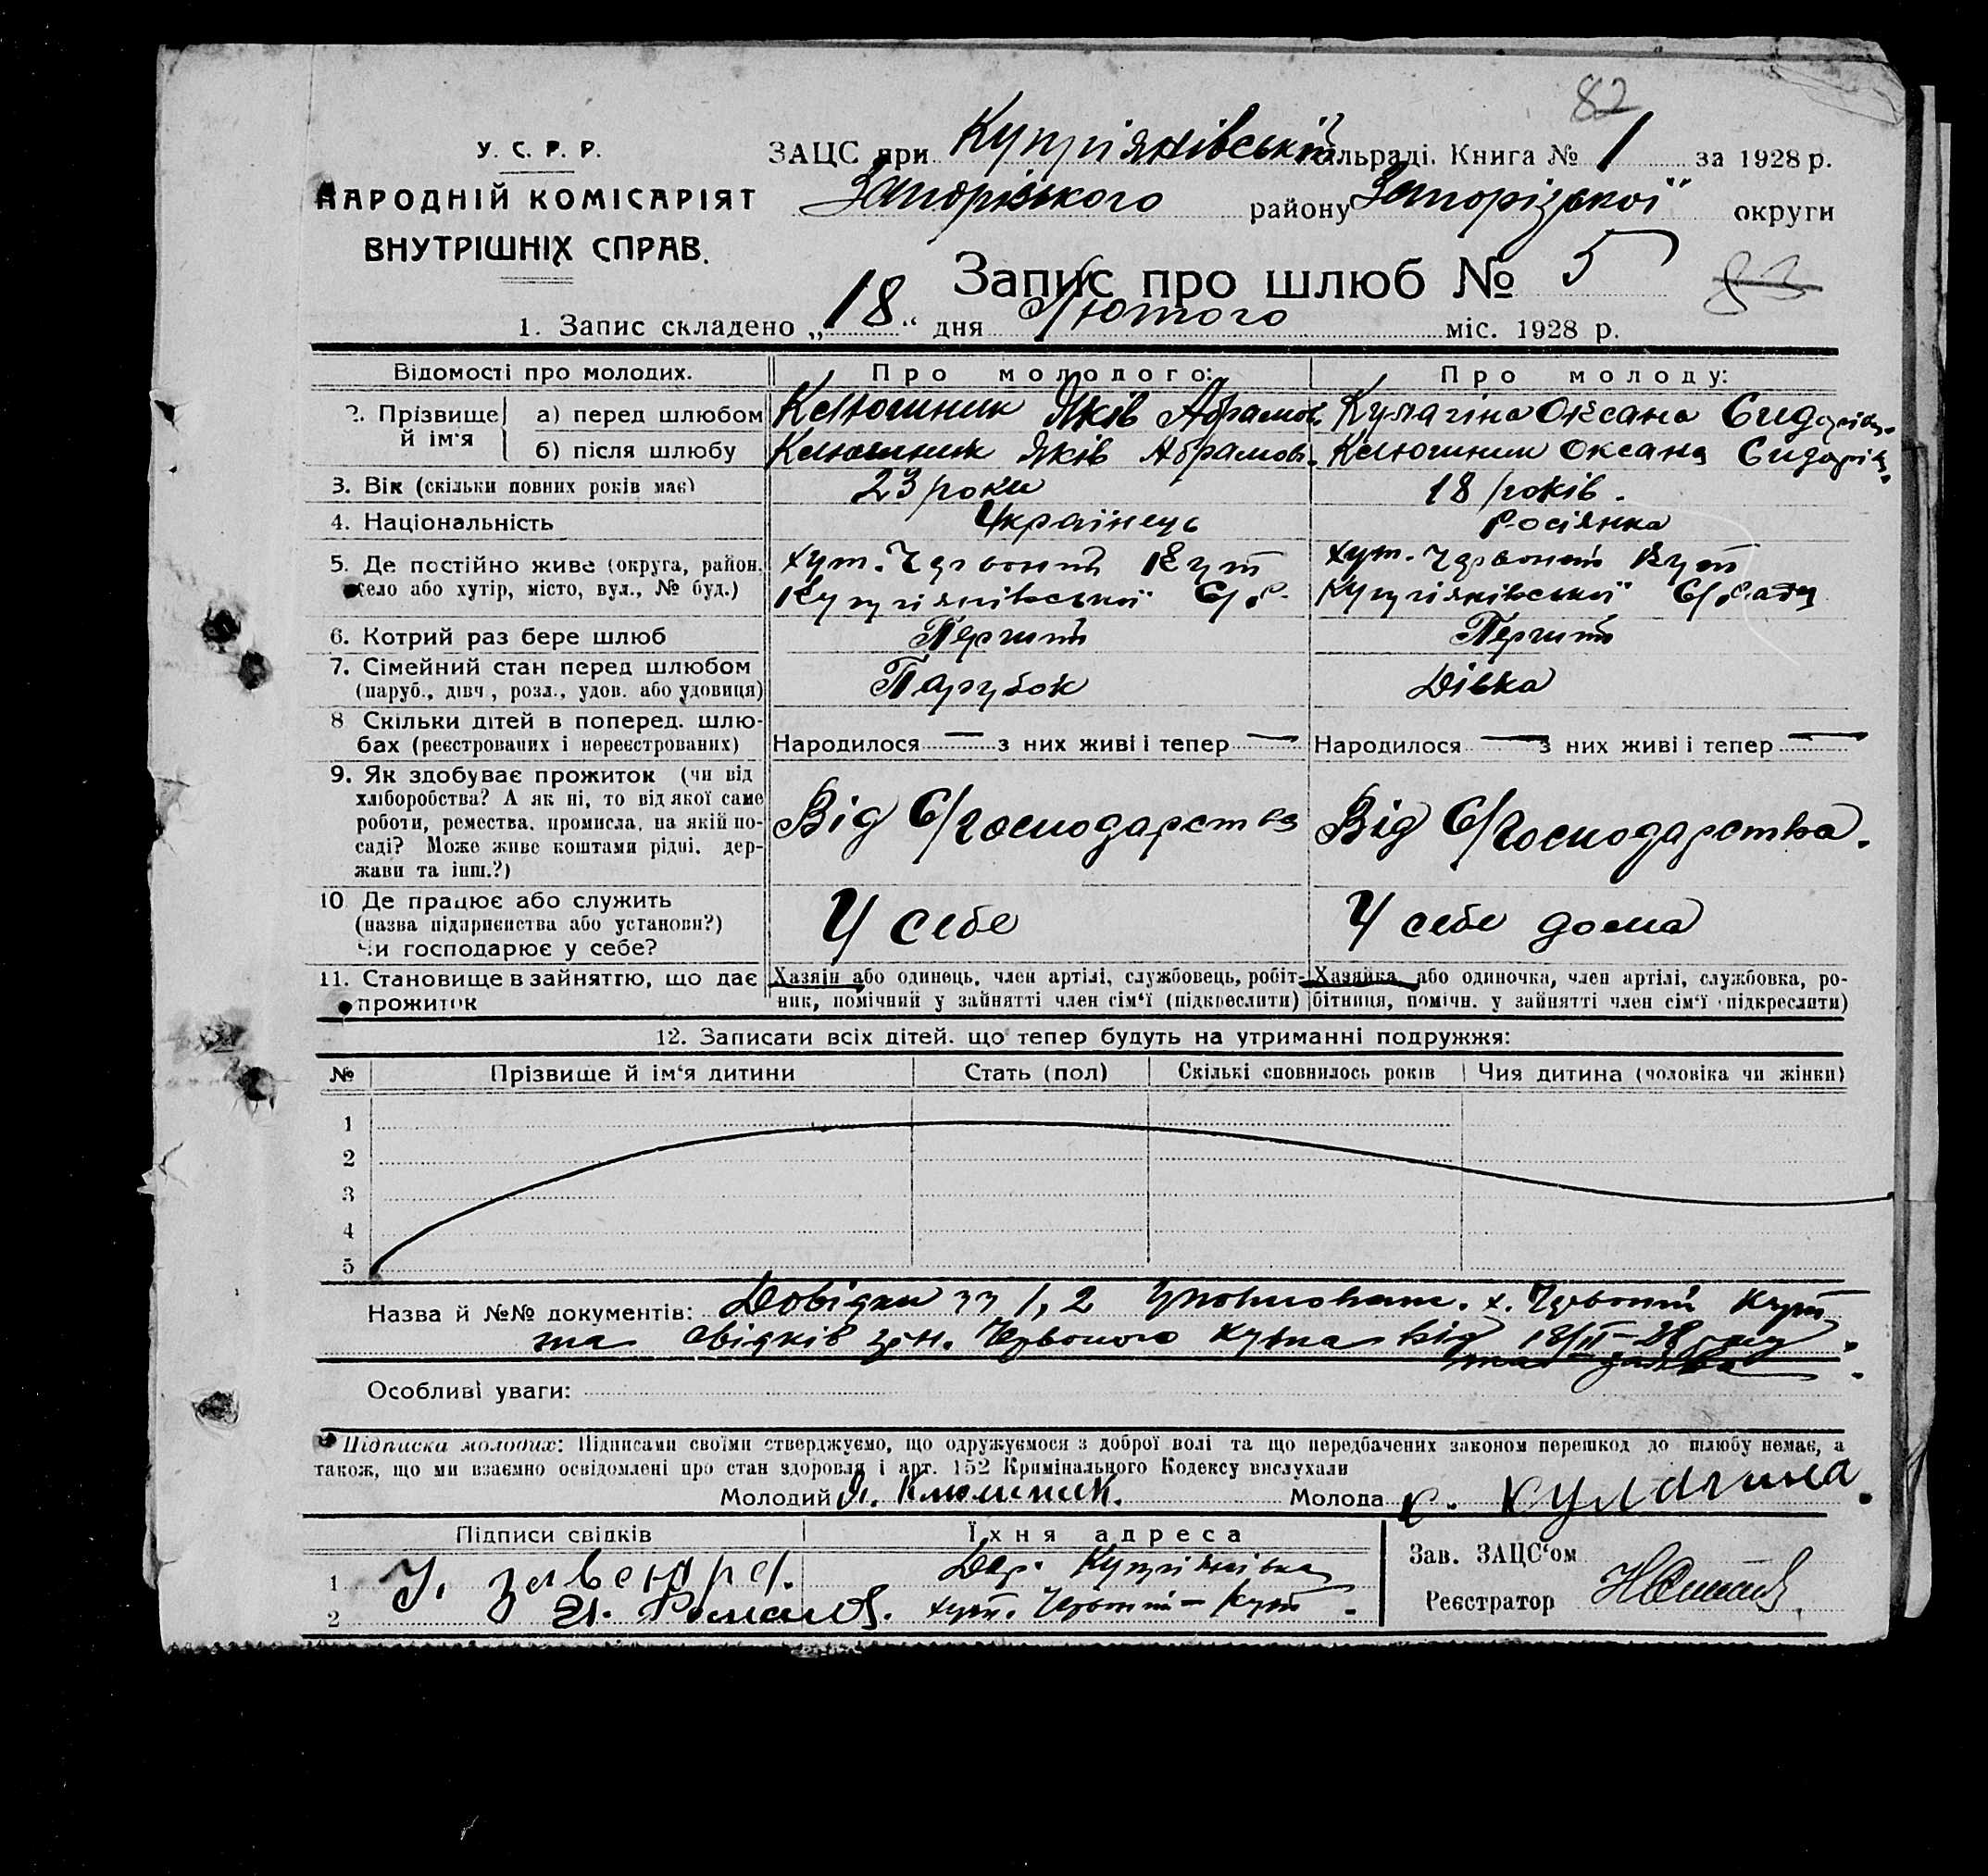 82
У. С. Р. Р.
НАРОДНІЙ КОМІСАРІЯТ
ВНУТРІШНІХ СПРАВ.
ЗАЦС при Купріянівській сільраді. Книга № 1 за 1928 р.
Запорізького району Запорізької округи
Запис про шлюб № 5
83
1. Запис складено „18“ дня Лютого міс. 1928 р.
Відомості про молодих. Про молодого: Про молоду:
2. Прізвище й ім'я а) перед шлюбом Клюшник Яків Абрамов. Кулагіна Оксана Сидорівн.
б) після шлюбу Клюшник Яків Абрамов. Клюшник Оксана Сидорів.
3. Вік (скільки повних років має) 23 роки 18 років.
4. Національність Українець Росіянка
5. Де постійно живе (округа, район, хут. Червоний Кут хут. Червоний Кут
село або хутір, місто, вул., № буд.) Купріянівської С/р. Купріянівської С/Ради
6. Котрий раз бере шлюб Перший Перший
7. Сімейний стан перед шлюбом Парубок Дівка
(паруб., дівч., розл., удов. або удовиця)
8 Скільки дітей в поперед. шлю-
бах (реєстрованих і нереєстрованих) Народилося — з них живі і тепер — Народилося — з них живі і тепер —
9. Як здобуває прожиток (чи від
хліборобства? А як ні, то від якої саме
роботи, ремества, промисла, на якій по- Від С/Господарства Від С/Господарства.
саді? Може живе коштами рідні, дер-
жави та інш.?)
10 Де працює або служить У себе У себе дома
(назва підприємства або установи?)
Чи господарює у себе?
11. Становище в зайняттю, що дає Хазяїн або одинець, член артілі, службовець, робіт- Хазяйка або одиночка, член артілі, службовка, ро-
прожиток ник, помічний у зайнятті член сім‘ї (підкреслити) бітниця, помічн. у зайнятті член сім‘ї (підкреслити)
12. Записати всіх дітей, що тепер будуть на утриманні подружжя:
№ Прізвище й ім‘я дитини Стать (пол) Скількі сповнилось років Чия дитина (чоловіка чи жінки)
1
2
3
4
5
Назва й №№ документів: Довідки 1, 2 Уповноваж. х. Червоний Кут
та свідків Червоного Кутка від 18/II-28 року.
Особливі уваги:
Підписка молодих: Підписами своїми стверджуємо, що одружуємося з доброї волі та що передбачених законом перешкод до шлюбу немає, а
також, що ми взаємно освідомлені про стан здоровля і арт. 152 Кримінального Кодексу вислухали
Молодий Я. Клюшник. Молода К. Кулагина.
Підписи свідків Їхня адреса Зав. ЗАЦС‘ом
1 Купріянівка
2 хут. Червоний-Кут. Реєстратор